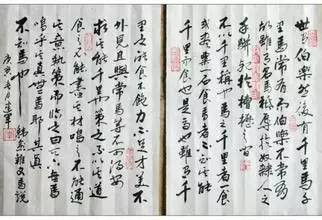 世有伯樂然後有千里馬千
里馬常有而伯樂不常有
故雖有名馬祗辱於奴隸人之
手駢死於槽櫪之間
不以千里稱也馬之千里者一食
或盡粟一石食馬者不知其能
千里而食也是馬也雖有千
里之能食不飽力不足才美不
外見且欲與常馬等不可得安
求其能千里也策之不以其道
食之不能盡其材鳴之不能通
其意執策而臨之曰天下無馬
嗚呼其真無馬耶其真
不知馬也 韓愈雜文馬說
庚寅 建軍